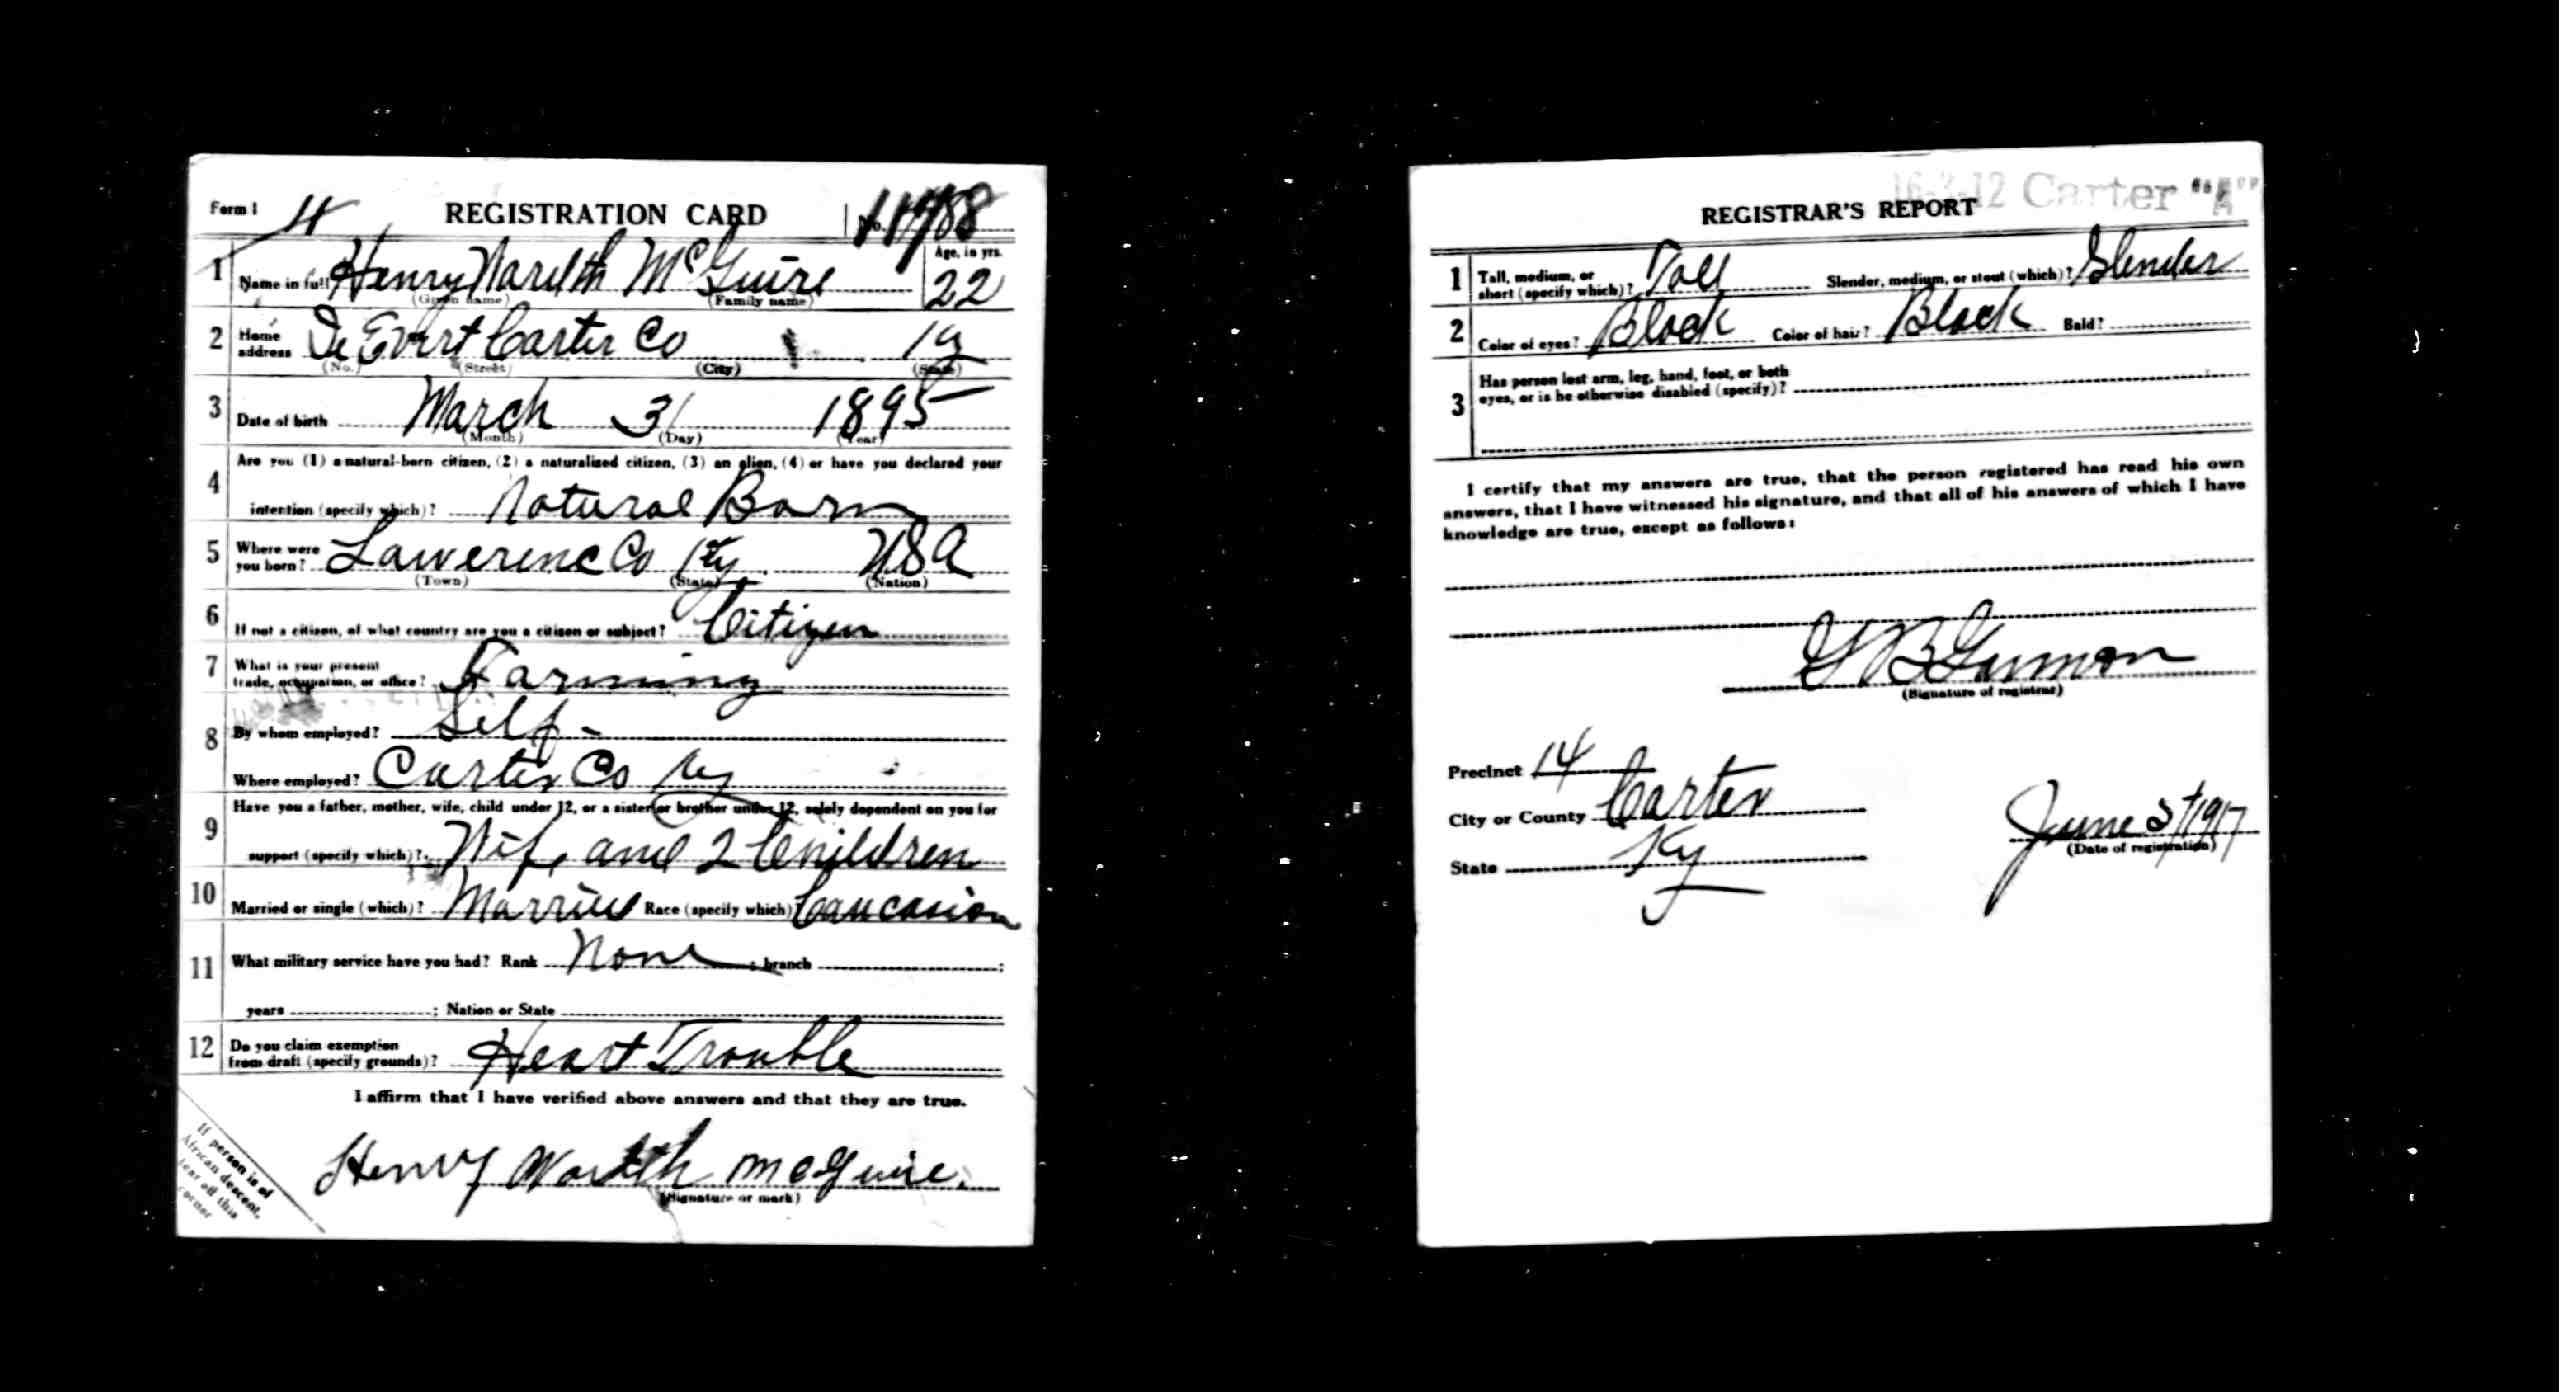 Form 1 REGISTRATION CARD No.
1 Name in full Henry McGuire Age, in yrs. 22
(Given name) (Family name)
2 Home address De Evert Carter Co Ky
(No.) (Street) (City) (State)
3 Date of birth March 31 1895
(Month) (Day) (Year)
4 Are you (1) a natural-born citizen, (2) a naturalized citizen, (3) an alien, (4) or have you declared your
intention (specify which)? Natural Born
5 Where were you born? Lawerenc Co Ky. USA
(Town) (State) (Nation)
6 If not a citizen, of what country are you a citizen or subject? Citizen
7 What is your present trade, occupation, or office? Farming
8 By whom employed? Self -
Where employed? Carter Co Ky
9 Have you a father, mother, wife, child under 12, or a sister or brother under 12, solely dependent on you for
support (specify which)? Wife and 2 Children
10 Married or single (which)? Married Race (specify which)? Caucasion
11 What military service have you had? Rank None ; branch ;
years ; Nation or State
12 Do you claim exemption from draft (specify grounds)? Heart Trouble
I affirm that I have verified above answers and that they are true.
Henry McGuire.
(Signature or mark)
If person is of
African descent,
tear off this
corner
16-3-12 Carter "A"
REGISTRAR'S REPORT
1 Tall, medium, or short (specify which)? Tall Slender, medium, or stout (which)? Slender
2 Color of eyes? Black Color of hair? Black Bald?
3 Has person lost arm, leg, hand, foot, or both
eyes, or is he otherwise disabled (specify)?
I certify that my answers are true, that the person registered has read his own
answers, that I have witnessed his signature, and that all of his answers of which I have
knowledge are true, except as follows:
(Signature of registrar)
Precinct 14
City or County Carter
State Ky
June 5/1917
(Date of registration)